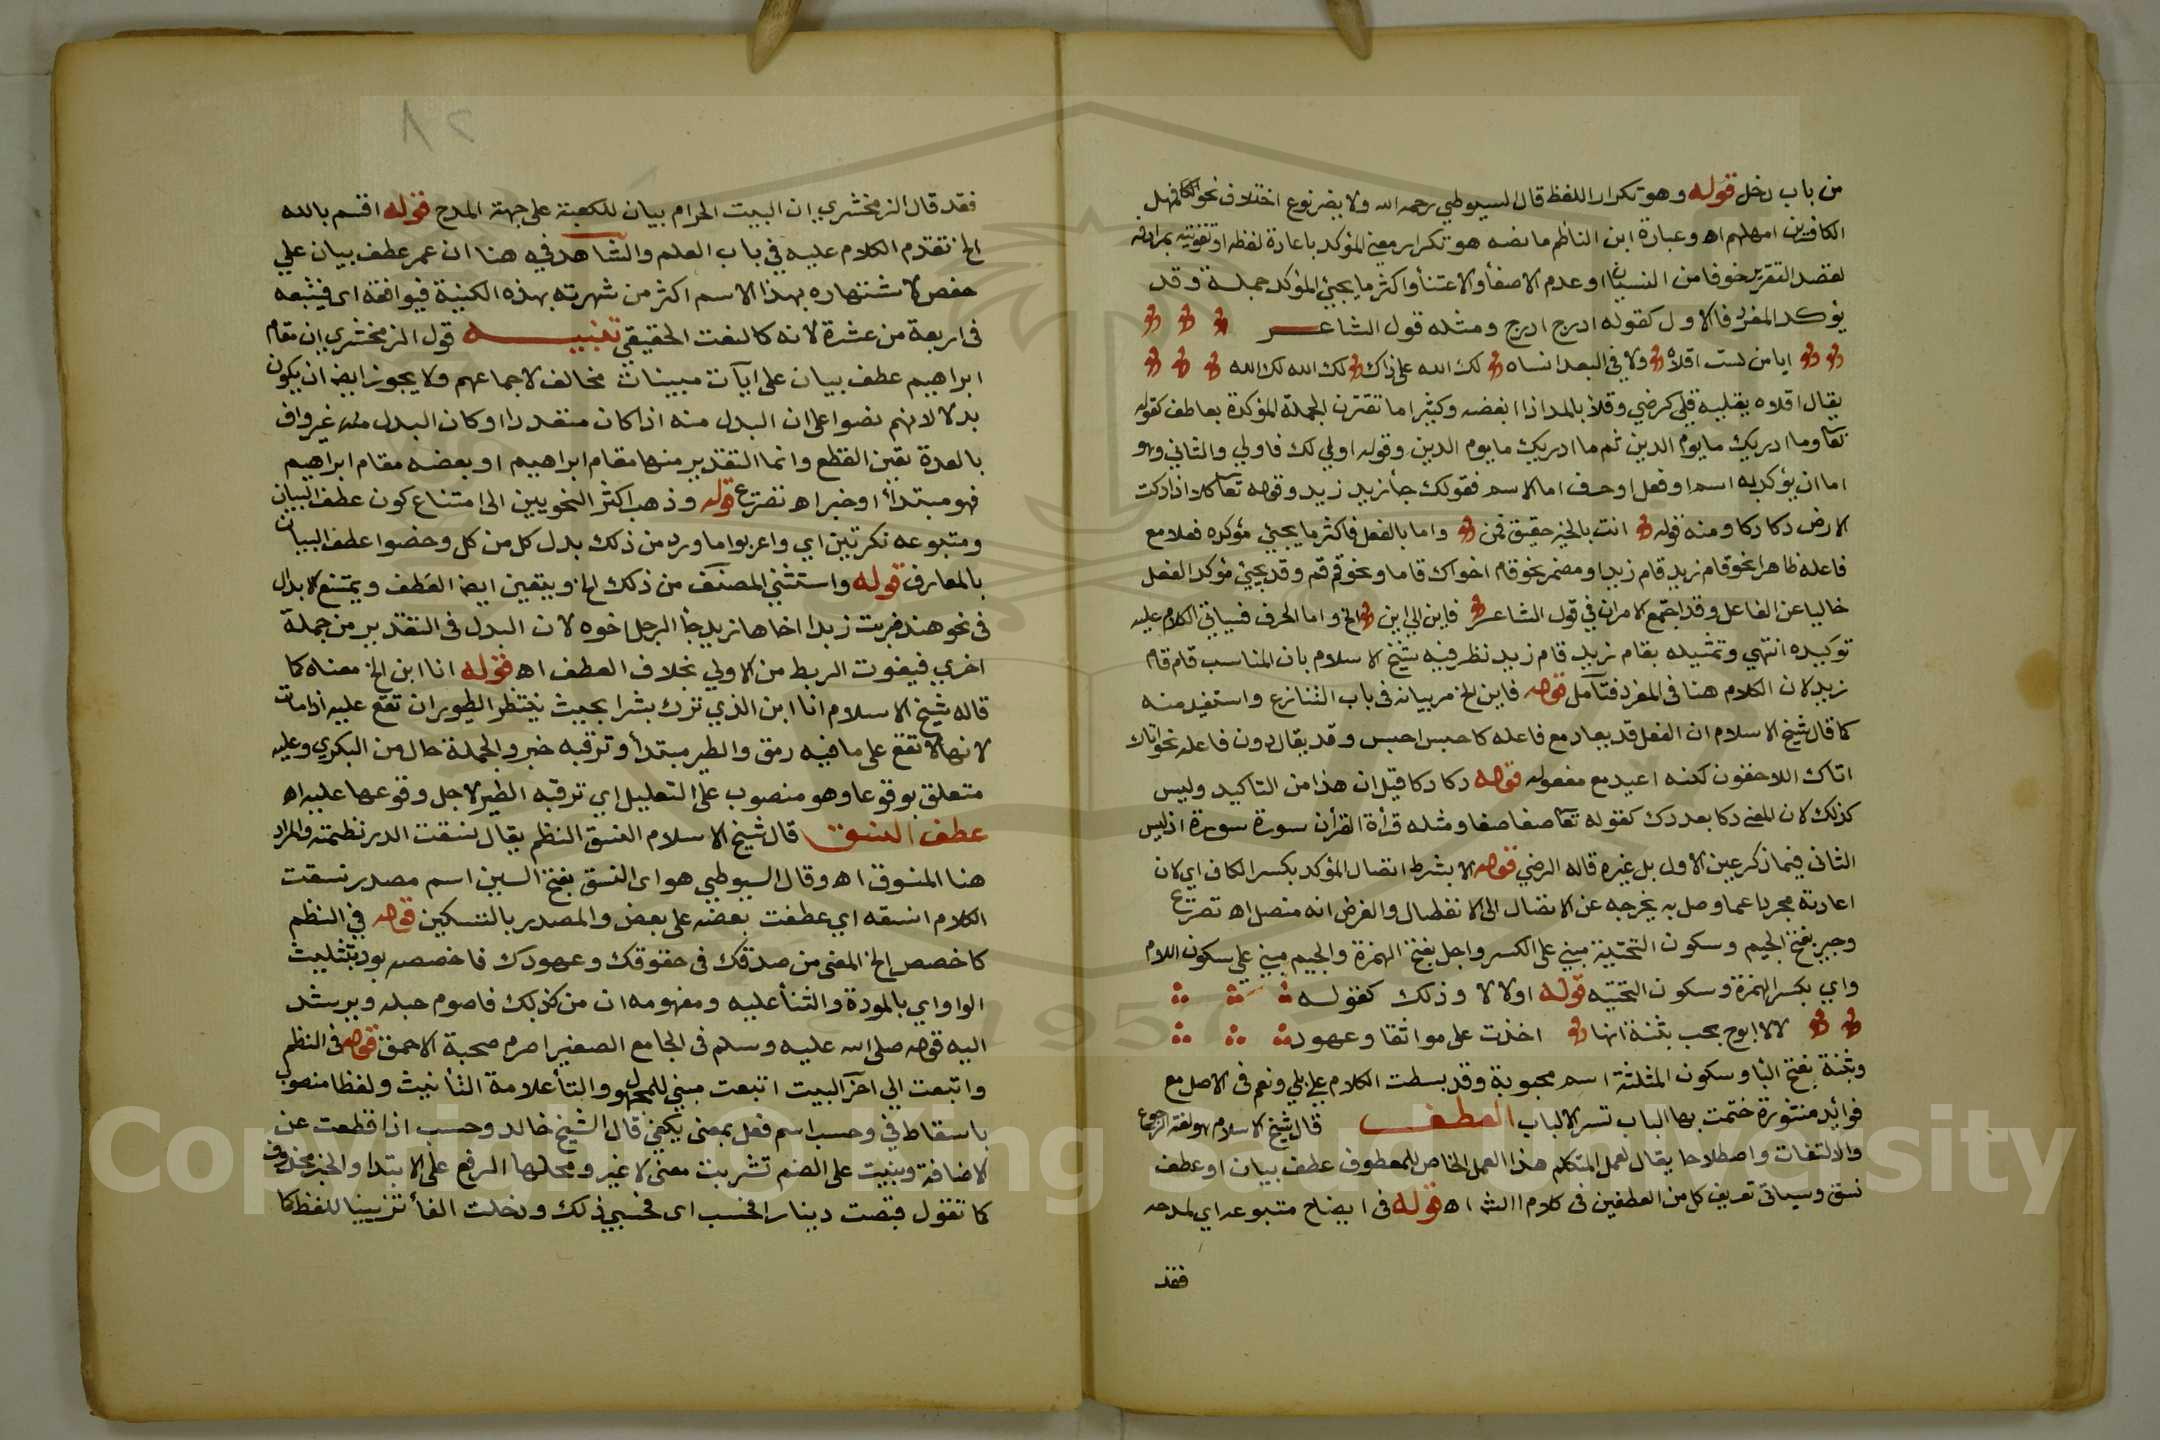 من باب دخل قوله وهو تكرار اللفظ قال السيوطي رحمه الله ولا يضر نوع اختلاف نحو فمهل
الكافرين امهلهم اه وعبارة ابن الناظم ما نصه هو تكرار معنى المؤكد باعادة لفظه او تقويته بمرادفه
لقصد التقرير خوفا من النسيان او عدم الاصغأ والاعتنأ واكثر ما يجيئ المؤكد جملة وقد
يؤكد المفرد فالاول كقوله ادرج ادرج ومثله قول الشاعر
ايا من لست اقلاه ولا في البعد انساه لك الله على ذاك لك الله لك الله
يقال اقلاه يقليه قلى كرضي وقلاء بالمد اذا ابغضه وكثيرا ما تقترن الجملة المؤكدة بعاطف كقوله
تعا وما ادريك ما يوم الدين ثم ما ادريك ما يوم الدين وقوله اولي لك فاولي والثاني وهو
اما ان يؤكد به اسم او فعل او حرف اما الاسم فقولك جأ زيد زيد وقوله تعا كلا اذا دكت
الارض دكا دكا ومنه قوله انت بالخير حقيق قمن واما بالفعل فاكثر ما يجيئ مؤكره فعلا مع
فاعله ظاهرا نحو قام زيد قام زيد او مضمر نحو قام اخواك قاما ونحو قم قم وقد يجيئ مؤكد الفعل
خاليا عن الفاعل وقد اجتمع الامران في قول الشاعر فاين الي اين الخ واما الحرف فسياتي الكلام عليه
توكيده انتهي وتمثيله بقام زيد قام زيد نظر فيه شيخ الاسلام بان المناسب قام قام
زيد لان الكلام هنا في المفرد فتأمل قوله فاين الخ مر بيانه في باب التنازع واستفيد منه
كما قال شيخ الاسلام ان الفعل قد يعاد مع فاعله كاحبس احبس وقد يقال دون فاعله نحو اتاك
اتاك اللاحقون لكنه اعيد مع مفعوله قوله دكا دكا قيل ان هذا من التاكيد وليس
كذلك لان المعنى دكا بعد دك كقوله تعا صفا صفا ومثله قرأة القرأن سورة سورة اذ ليس
الثاني فيما ذكر عين الاول بل غيره قاله الرضي قوله الا بشرط اتصال المؤكد بكسر الكاف اي لان
اعادته مجردا عما وصل به يخرجه عن الاتصال الى الانفصال والغرض انه متصل اه تصريح
وجير بفتح الجيم وسكون التحتية مبني على الكسر واجل بفتح الهمزة والجيم مبني على سكون اللام
واي بكسر الهمزة وسكون التحتيه قوله اولا لا وذلك كقوله
لا لا ابوح بحب بثنة انها اخذت على مواثقا وعهود
وبثنة بفتح البأ وسكون المثلثة اسم محبوبة وقد بسطت الكلام على بلي ونعم في الاصل مع
فوائد منثورة ختمت بها الباب تسر الالباب العطف قال شيخ الاسلام هو لغة الرجوع
والالتفات واصطلاحا يقال لعمل المتكلم هذا العمل الخاص للمعطوف عطف بيان او عطف
نسق وسياتي تعريف كل من العطفين في كلام الش اه قوله في ايضاح متبوعه اي لمدحه
فقد
٢٨
فقد قال الزمخشري ان البيت الحرام بيان للكعبة على جهة المدح قوله اقسم بالله
الخ تقدم الكلام عليه في باب العلم والشاهد فيه هنا ان عمر عطف بيان علي
حفص لاشتهاره بهذا الاسم اكثر من شهرته بهذه الكنية فيوافقه اي فيتبعه
في اربعة من عشرة لانه كالنعت الحقيقي تنبيه قول الزمخشري ان مقام
ابراهيم عطف بيان على ايآت مبينات مخالف لاجماعهم ولا يجوز ايضا ان يكون
بدلا لانهم نصوا على ان البدل منه اذا كان متعددا وكان البدل منه غير واف
بالعدة تعين القطع وانما التقدير منها مقام ابراهيم او بعضه مقام ابراهيم
فهو مبتدأ او خبر اه تصريح قوله وذهب اكثر النحويين الى امتناع كون عطف البيان
ومتبوعه نكرتين اي واعربوا ما ورد من ذلك بدل كل من كل وخصوا عطف البيان
بالمعارف قوله واستثنى المصنف من ذلك الخ ويتعين ايضا العطف ويمتنع الابدال
في نحو هند ضربت زيدا اخاها زيد جأ الرجل اخوه لان البدل في التقدير من جملة
اخري فيفوت الربط من الاولي بخلاف العطف اه قوله انا ابن الخ معناه كما
قاله شيخ الاسلام انا ابن الذي ترك بشرا بحيث تنتظر الطيور ان تقع عليه اذا مات
لانها لا تقع على ما فيه رمق والطير مبتدأ وترقبه خبر والجملة حال من البكري وعليه
متعلق بوقوعا وهو منصوب على التعليل اي ترقبه الطير لاجل وقوعها عليه اه
عطف النسق قال شيخ الاسلام النسق النظم يقال نسقت الدر نظمته والمراد
هنا المنسوق اه وقال السيوطي هو اي النسق بفتح السين اسم مصدر نسقت
الكلام انسقه اي عطفت بعضه على بعض والمصدر بالتسكين قوله في النظم
كاخصص الخ المعنى من صدقك في حقوقك وعهودك فاخصصه بود بتثليث
الواو اي بالمودة والثنأ عليه ومفهومه ان من كذبك فاصرم حبله ويرشد
اليه قوله صلى الله عليه وسلم في الجامع الصغير اصرم صحبة الاحمق قوله في النظم
واتبعت الي اخر البيت اتبعت مبني للمجهول والتأ علامة التأنيث ولفظا منصوب
باسقاط في وحسب اسم فعل بمعنى يكفي قال الشيخ خالد وحسب اذا قطعت عن
الاضافة وبنيت على الضم تشربت معنى لا غير ومحلها الرفع على الابتدا والخبر محذوف
كما تقول قبضت دينارا فحسب اي فحسبي ذلك ودخلت الفأ تزيينا للفظ كما
Copyright © King Saud University
1957